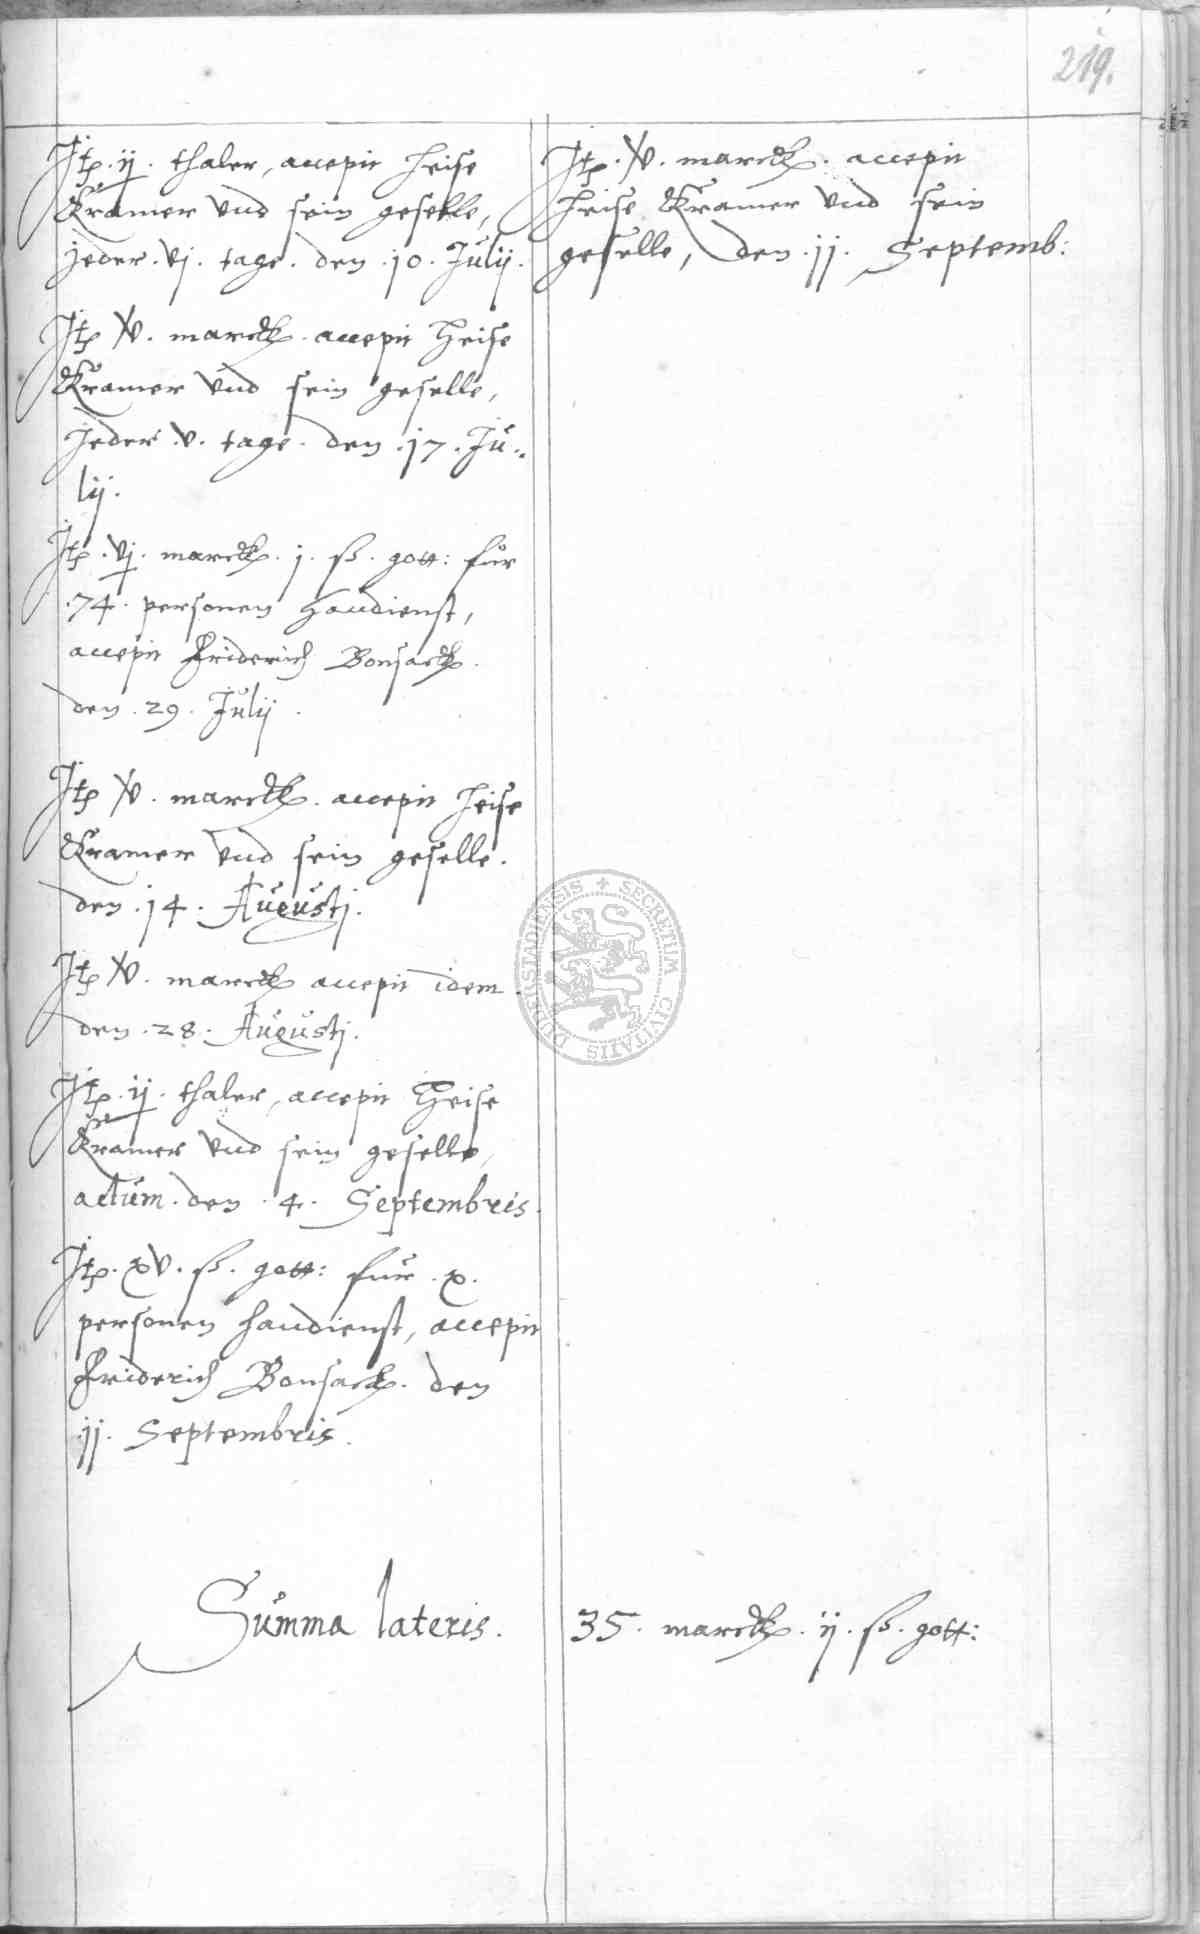 219.
Itē. ij. thaler, accepit Heise
Kramer vnd sein geselle,
jeder. vj. tage. den .10. Julij.
Itē v. marck. accepit Heise
Kramer vnd sein geselle,
Jeder .v. tage. den .17. Ju-
lij.
Itē. vj. marck. j. ß. gott: für
.74. personen handienst,
accepit Friderich Bonsack.
den .29. Julij.
Itē v. marck. accepit Heise
Kramer vnd sein geselle.
den .14. Augustj.
Itē v. marck accepit idem.
den .28. Augustj.
Itē. ij. thaler, accepit Heise
Kramer vnd sein geselle,
actum. den .4. Septembris.
Itē. xv. ß. gott: für .x.
personen handienst, accepit
Friderich Bonsack. den
11. Septembris.
Itē. v. marck. accepit
Heise Kramer vnd sein
geselle, den .11. Septemb:
Summa lateris. 35. marck. ij. ß. gott:
SECRETUM CIVITATIS DUDERSTADIENSIS